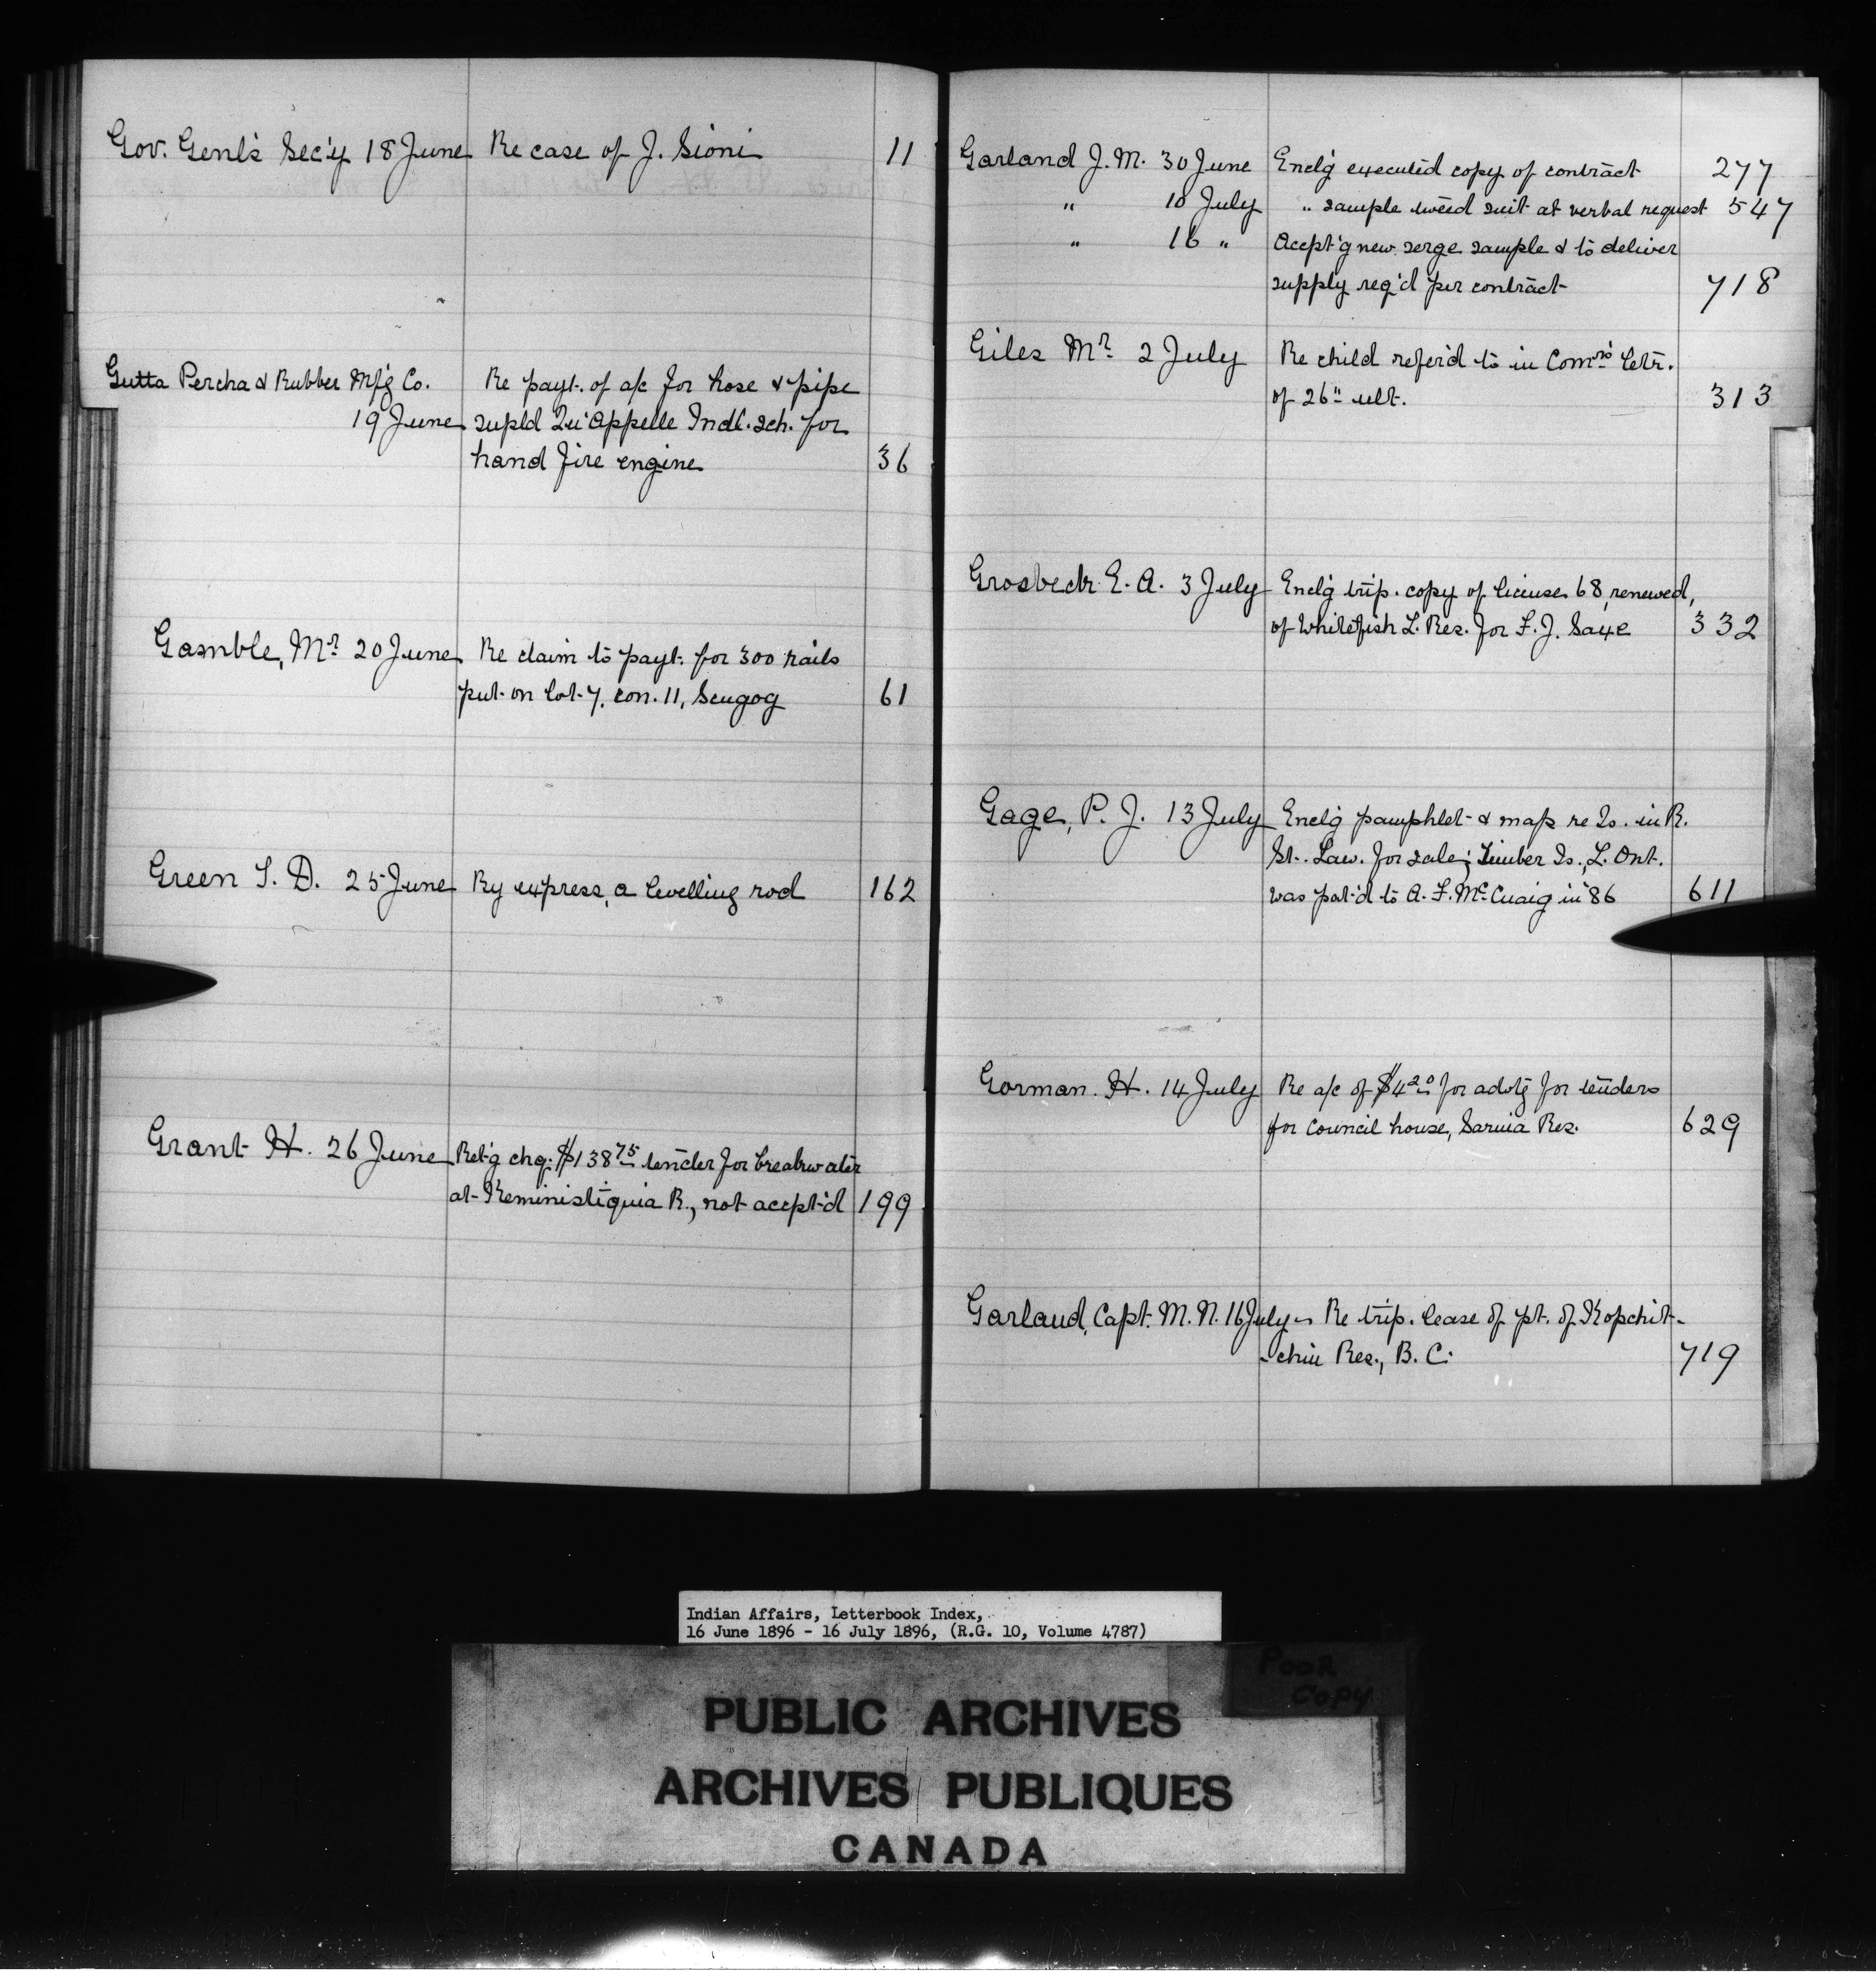 Gov. Genl's Sec'y 18 June Re case of J. Sioni 11
Gutta Percha & Rubber Mf'g Co. Re payt. of a/c for hose & pipe
19 June supld Qu'Appelle Indl. sch. for
hand fire engine 36
Gamble, Mr. 20 June Re claim to payt. for 300 rails
put on lot 7, con. 11, Scugog 61
Green T. D. 25 June By express, a levelling rod 162
Grant H. 26 June Ret'g chq. $138 75 tender for breakwater
at Keministiquia R., not accpt'd 199
Garland J. M. 30 June Encl'g executed copy of contract 277
" 10 July " sample tweed suit at verbal request 547
" 16 " Accpt'g new serge sample & to deliver
supply req'd per contract 718
Giles Mr. 2 July Re child refer'd to in Comr's letr.
of 26" ult. 313
Grosbeck E. A. 3 July Encl'g trip. copy of license 68, renewed,
of Whitefish L. Res. for F. J. Saye 332
Gage, P. J. 13 July Encl'g pamphlet & map re Is. in R.
St. Law. for sale; Timber Is., L. Ont.
was pat'd to A. F. McCuaig in '86 611
Gorman. H. 14 July Re a/c of $4 20 for advt'g for tenders
for council house, Sarnia Res. 629
Garland, Capt. M. N. 16 July Re trip. lease of pt. of Kopchit-
-chin Res., B. C. 719
Indian Affairs, Letterbook Index,
16 June 1896 - 16 July 1896, (R.G. 10, Volume 4787)
Poor
Copy
PUBLIC ARCHIVES
ARCHIVES PUBLIQUES
CANADA